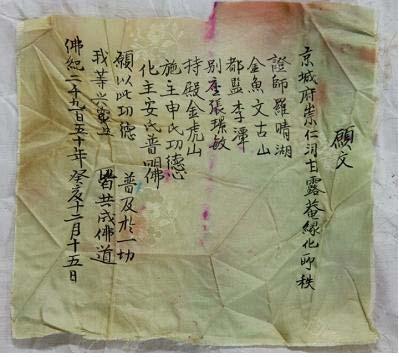 願文
京城府崇仁洞甘露菴緣化所秩
證師羅晴湖
金魚文古山
都監李潭
別座張敏
持殿金虎山
施主申氏功德
化主安氏普明佛
願以此功德 普及於一切
我等與衆生 皆共成佛道
佛紀二千九百五十年癸亥十二月十五日